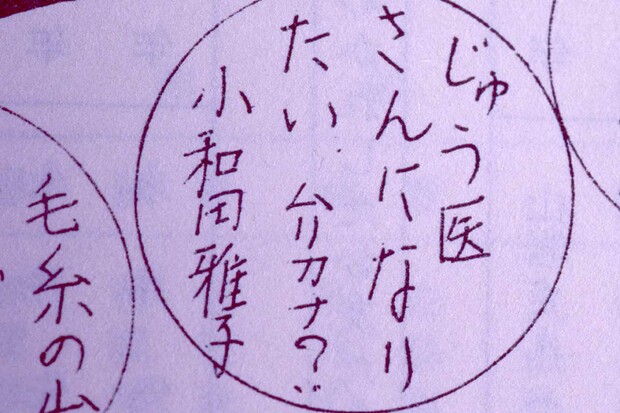 じゅう医
さんになり
たい ムリカナ?
小和田雅子
毛糸の